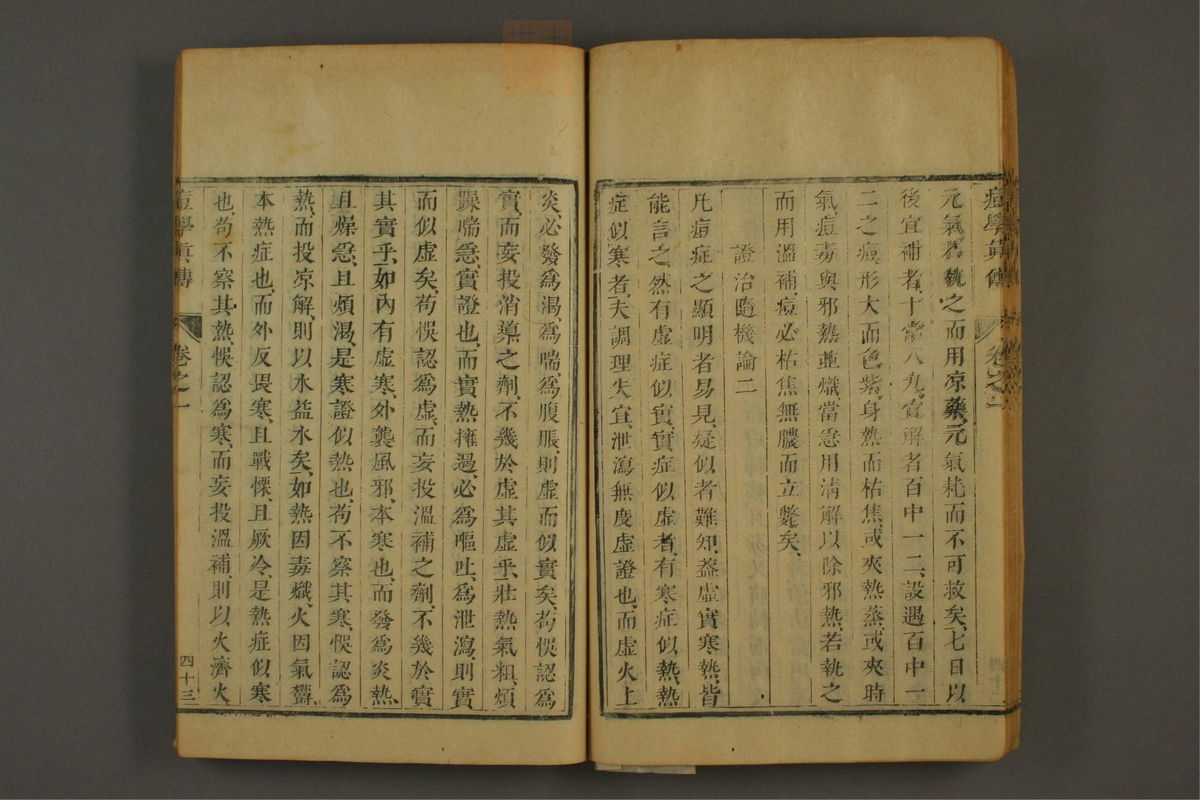 痘學眞傳 卷之一
元氣若執之而用凉藥、元氣耗而不可救矣、七日以
後宜補者、十常八九、宜解者百中一二、設遇百中一
二之痘、形大而色紫、身熱而枯焦、或夾熱蒸、或夾時
氣、痘毒與邪熱並熾、當急用清解以除邪熱、若執之
而用溫補、痘必枯焦無膿而立斃矣、
證治隨機論二
凡痘症之顯明者易見、疑似者難知、蓋虛實寒熱、皆
能言之、然有虛症似實、實症似虛者、有寒症似熱、熱
症似寒者、夫調理失宜、泄瀉無度、虛證也、而虛火上
炎、必發爲渴、爲喘、爲腹脹、則虛而似實矣、苟悞認爲
實、而妄投消導之劑、不幾於虛其虛乎、壯熱氣粗、煩
躁喘急、實證也、而實熱擁遏、必爲嘔吐、爲泄瀉、則實
而似虛矣、苟悞認爲虛、而妄投溫補之劑、不幾於實
其實乎、如內有虛寒、外襲風邪、本寒也、而發爲炎熱、
且燥急、且煩渴、是寒證似熱也、苟不察其寒、悞認爲
熱、而投凉解、則以水益水矣、如熱因毒熾、火因氣鬱、
本熱症也、而外反畏寒、且戰慄、且厥冷、是熱症似寒
也、苟不察其熱、悞認爲寒、而妄投溫補、則以火濟火
痘學眞傳 卷之一 四十三